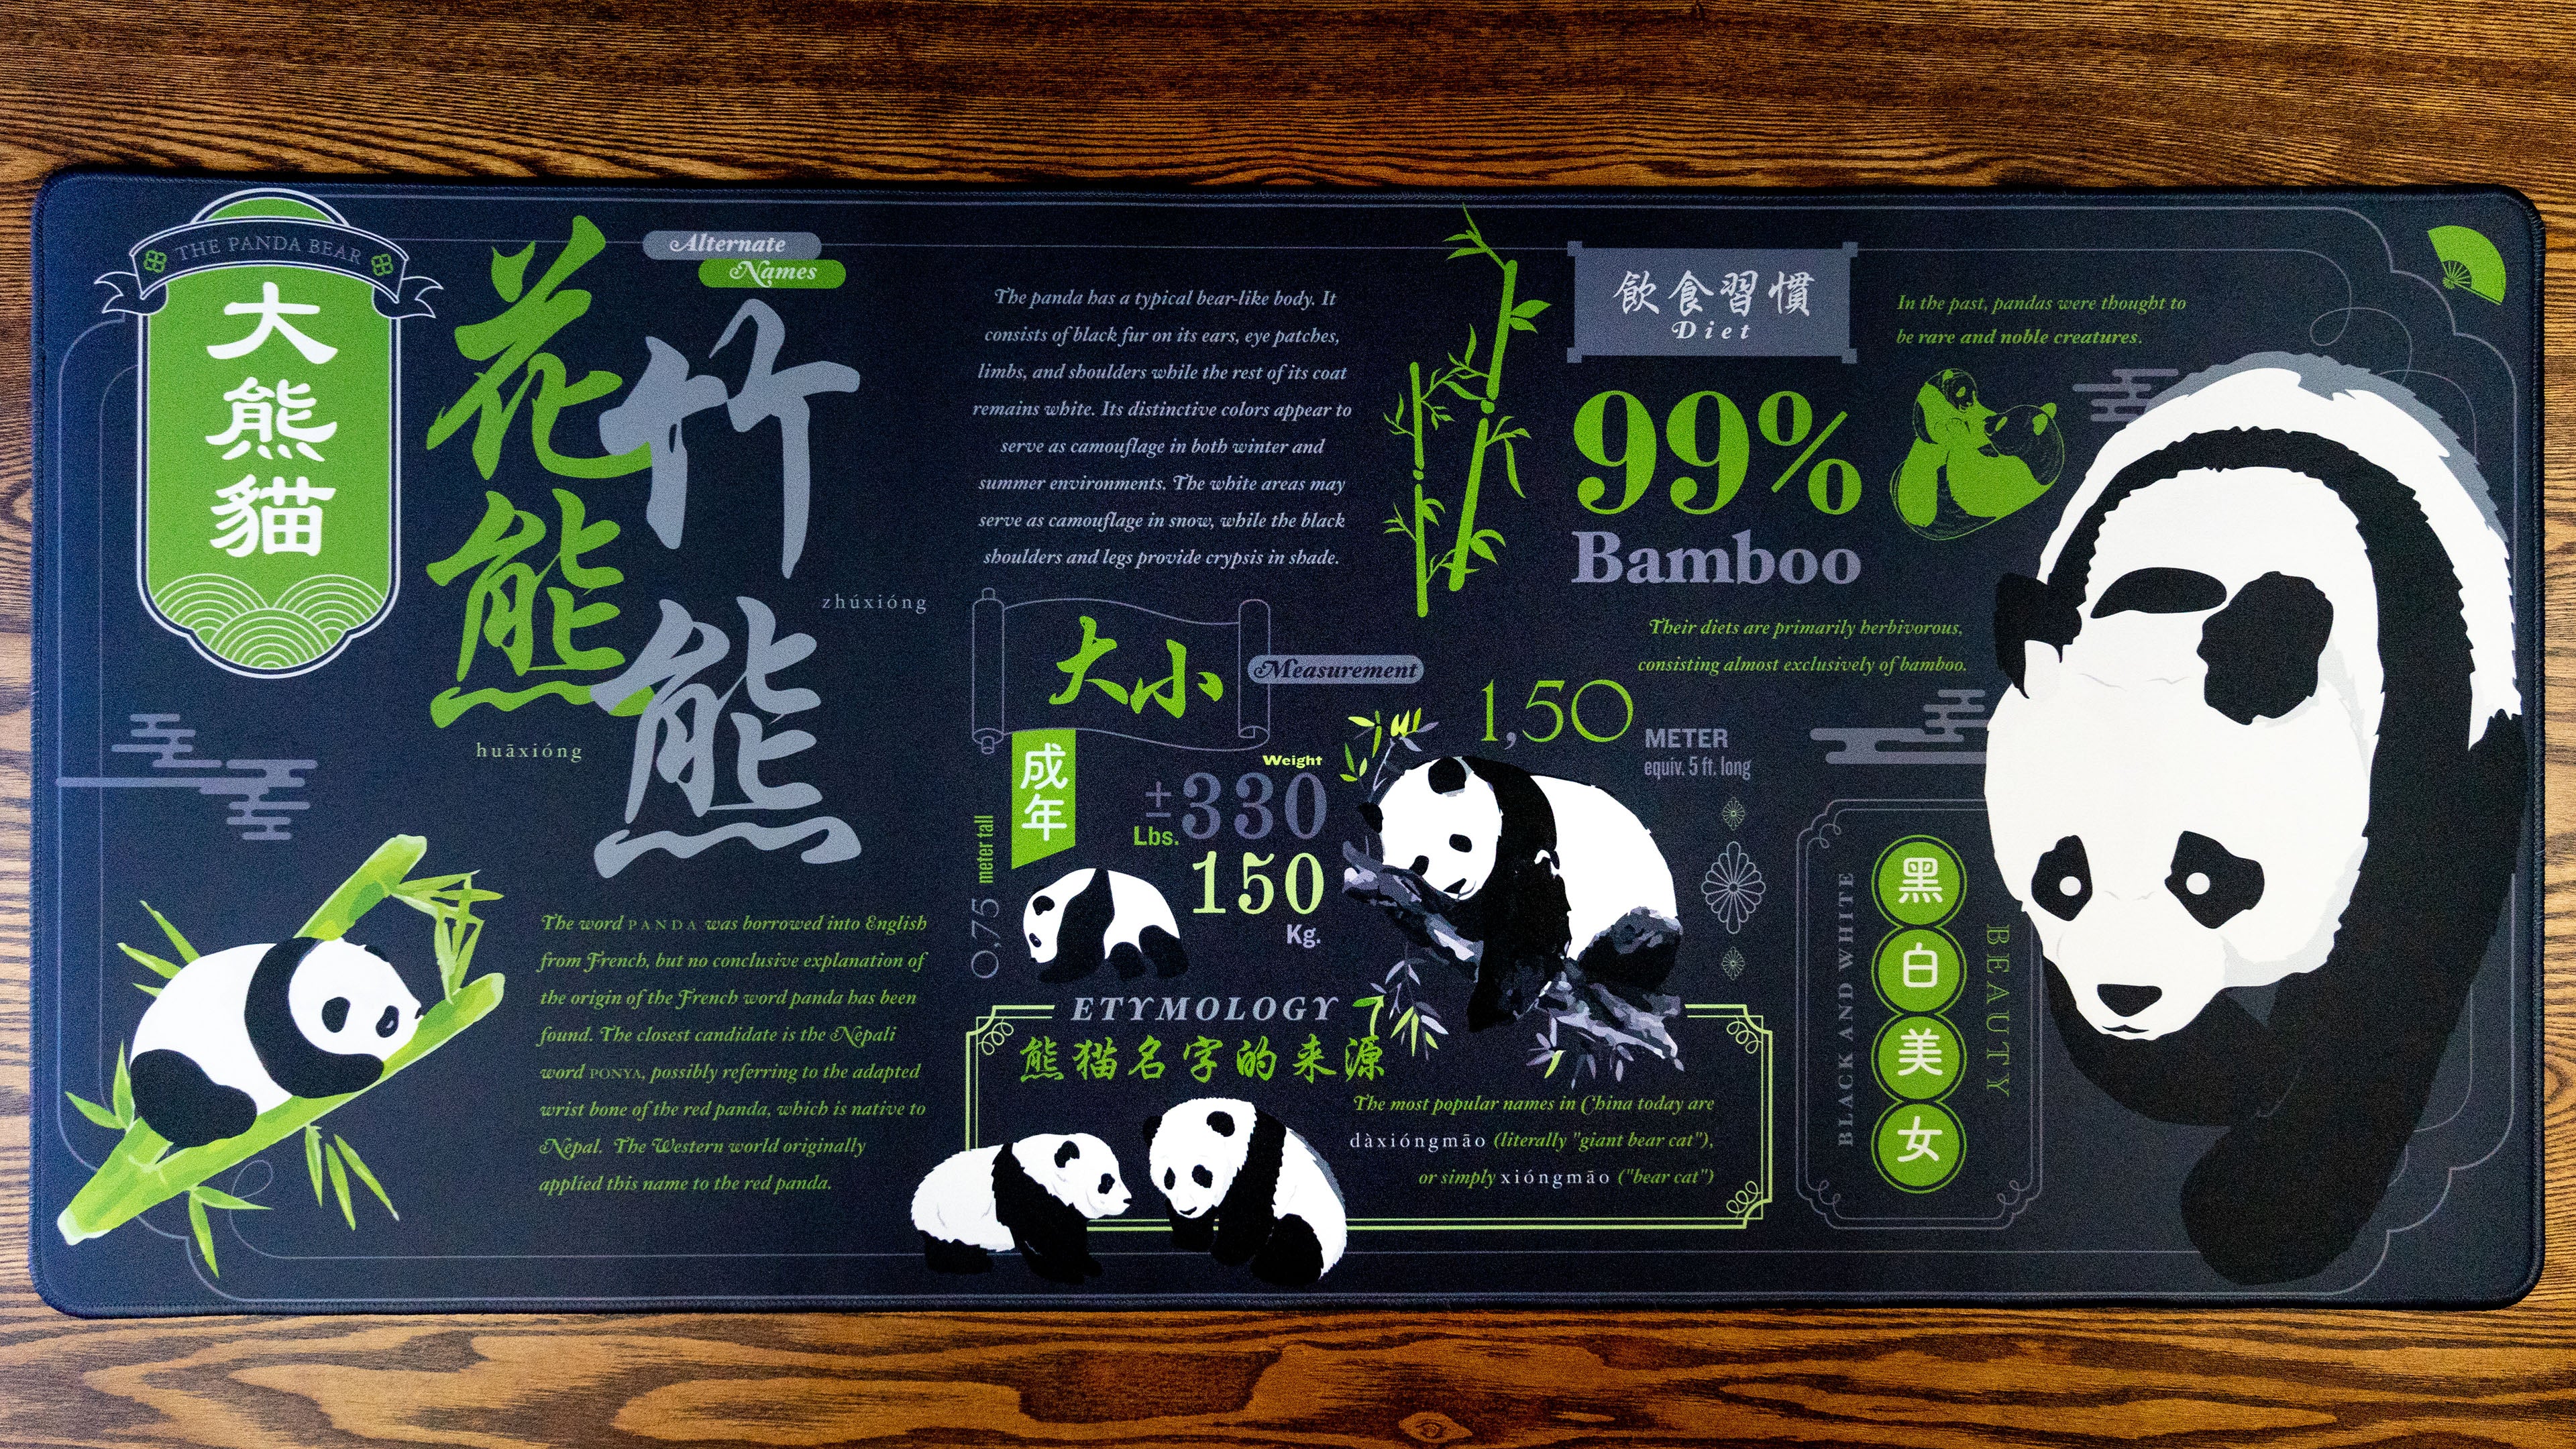 THE PANDA BEAR
大
熊
貓
Alternate
Names
花
熊
huāxióng
竹
熊
zhúxióng
The word PANDA was borrowed into English
from French, but no conclusive explanation of
the origin of the French word panda has been
found. The closest candidate is the Nepali
word PONYA, possibly referring to the adapted
wrist bone of the red panda, which is native to
Nepal. The Western world originally
applied this name to the red panda.
The panda has a typical bear-like body. It
consists of black fur on its ears, eye patches,
limbs, and shoulders while the rest of its coat
remains white. Its distinctive colors appear to
serve as camouflage in both winter and
summer environments. The white areas may
serve as camouflage in snow, while the black
shoulders and legs provide crypsis in shade.
大小
Measurement
成
年
0,75 meter tall
Weight
±330
Lbs.
150
Kg.
1,50
METER
equiv. 5 ft. long
ETYMOLOGY
熊猫名字的来源
The most popular names in China today are
dàxióngmāo (literally "giant bear cat"),
or simply xióngmāo ("bear cat")
飲食習慣
Diet
99%
Bamboo
Their diets are primarily herbivorous,
consisting almost exclusively of bamboo.
In the past, pandas were thought to
be rare and noble creatures.
BLACK AND WHITE
黑
白
美
女
BEAUTY